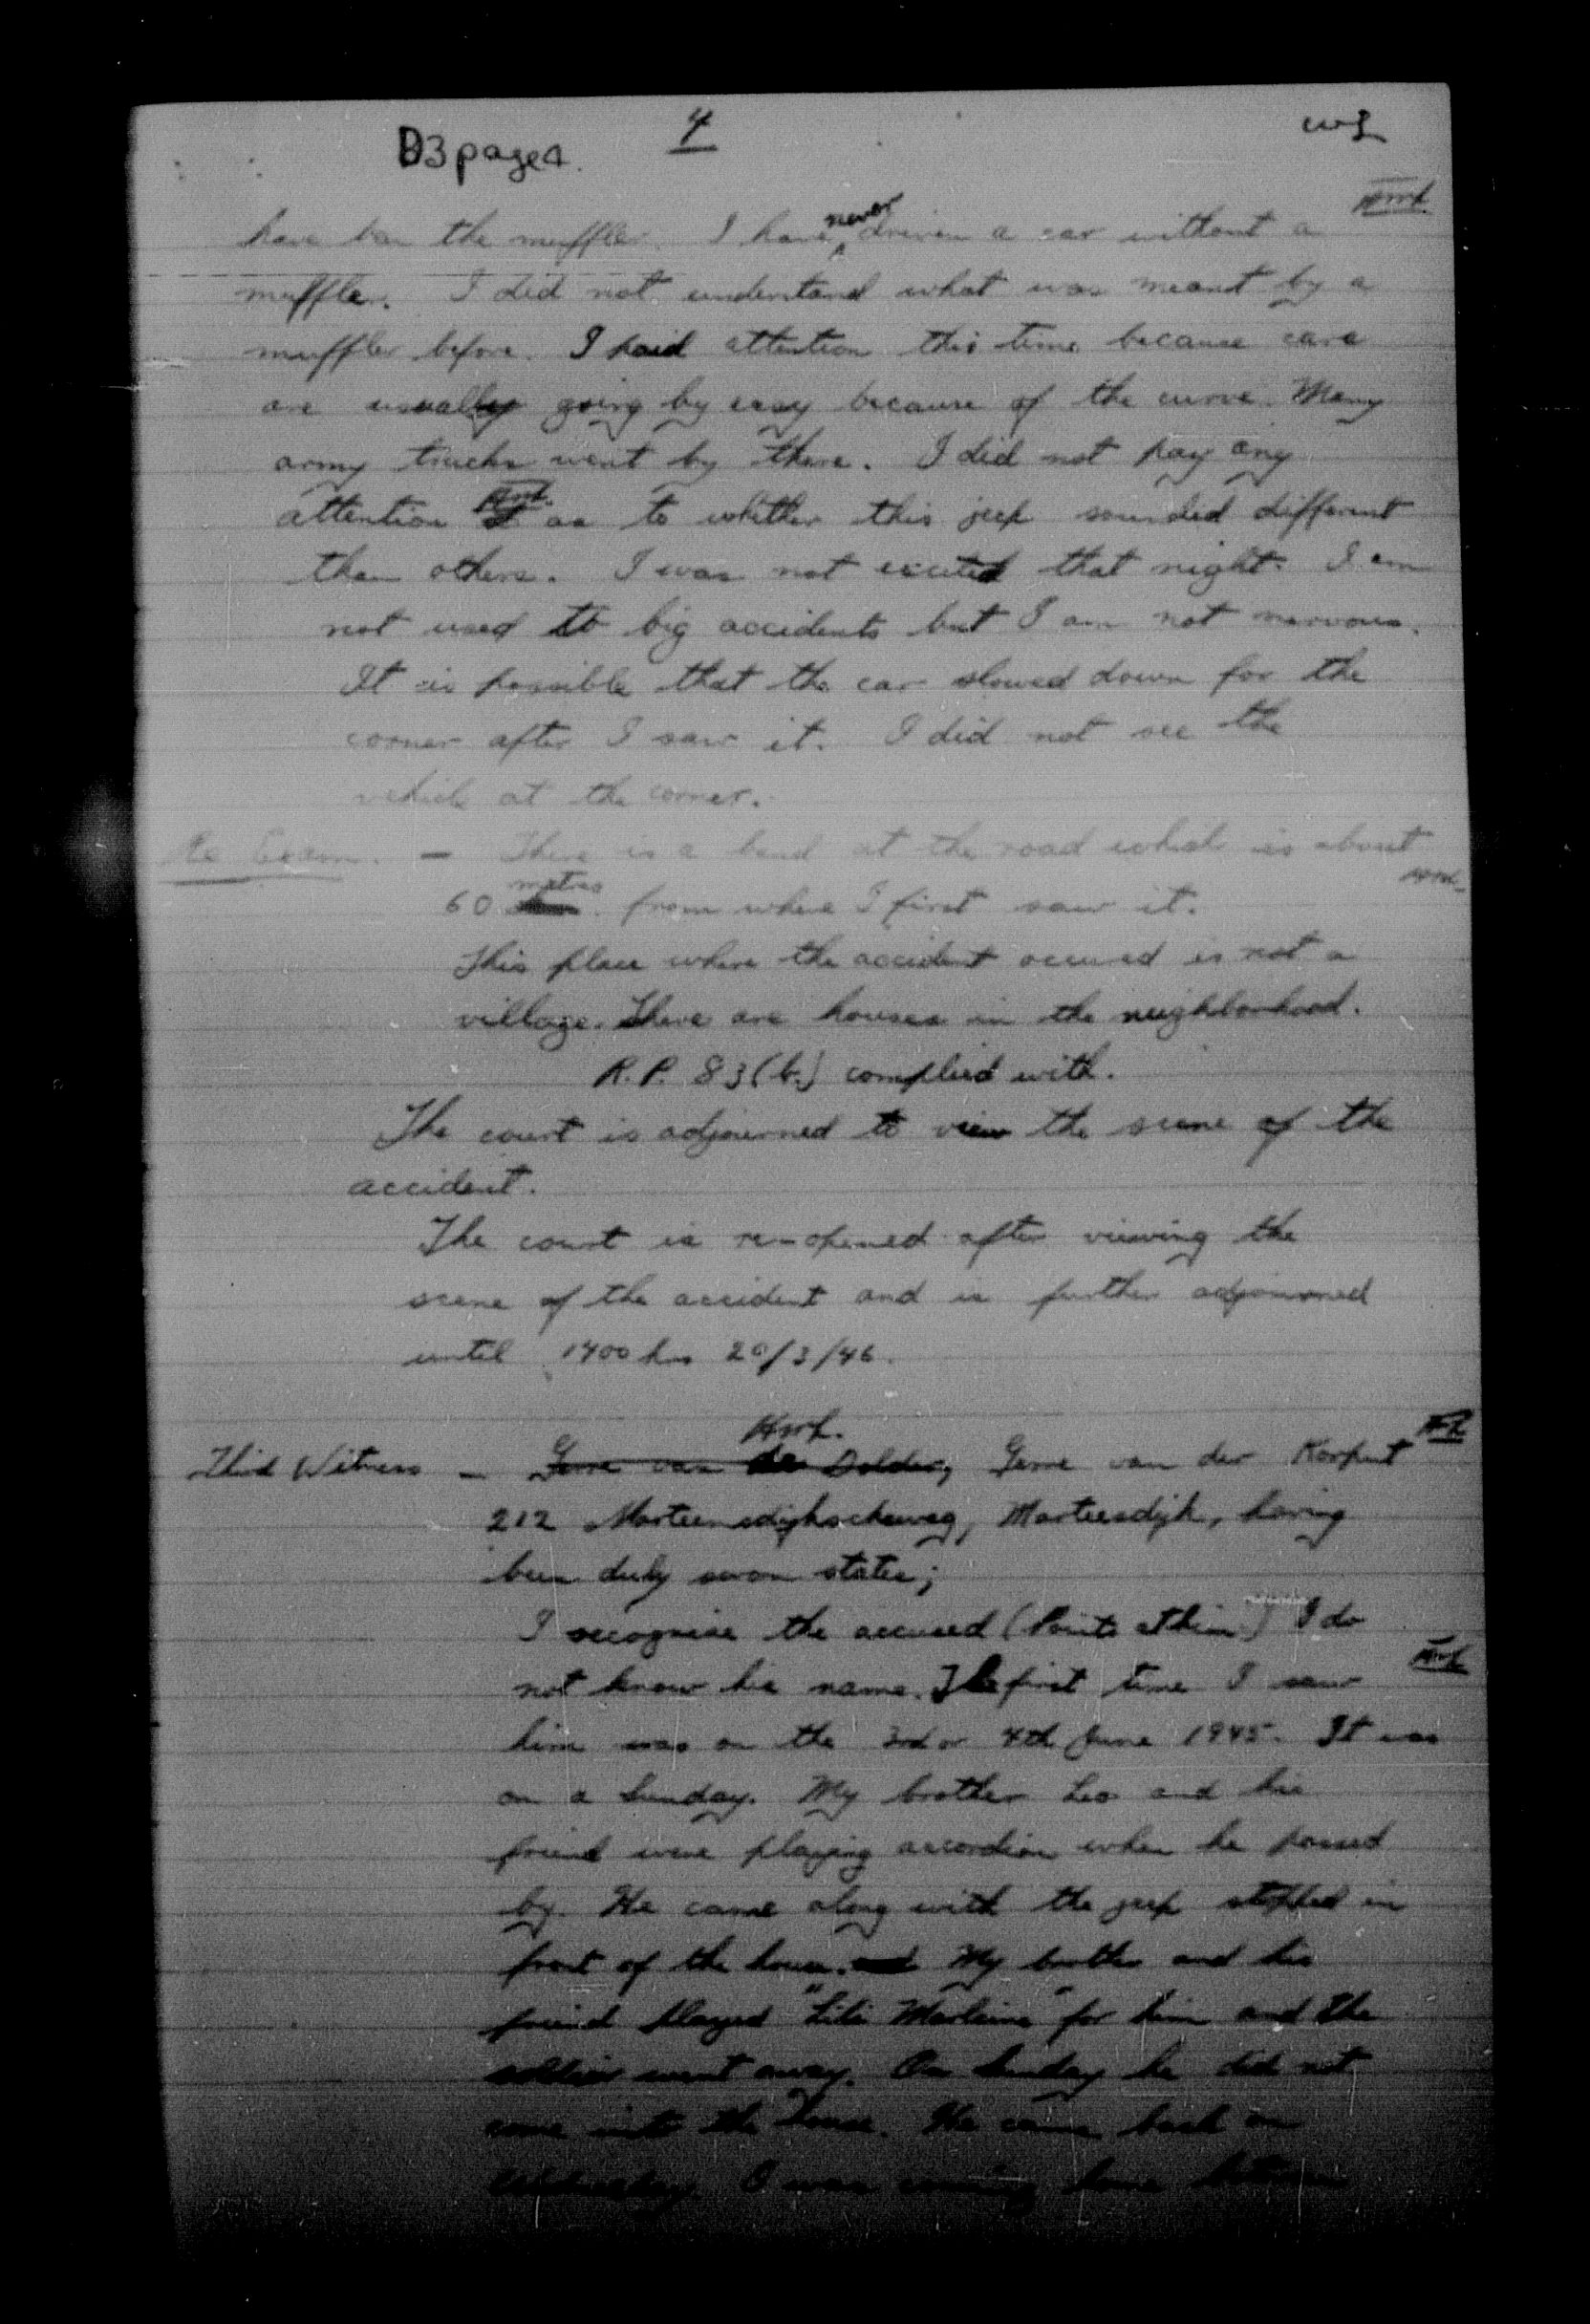 D3 page 4.
4
have been the muffler. I have never driven a car without a
muffler. I did not understand what was meant by a
muffler before. I paid attention this time because cars
are usually going by easy because of the curve. Many
army trucks went by there. I did not pay any
attention as to whether this jeep sounded different
than others. I was not excited that night. I am
not used to big accidents but I am not nervous.
It is possible that the car slowed down for the
corner after I saw it. I did not see the
vehicle at the corner.
Re Exam. - There is a bend at the road which is about
60 metres from where I first saw it.
This place where the accident occured is not a
village. There are houses in the neighborhood.
R.P. 83(b.) complied with.
The court is adjourned to view the scene of the
accident.
The court is re-opened after viewing the
scene of the accident and is further adjourned
until 1400 hrs 20/3/46.
Third Witness - van de Dolder, van der Korput
212 Marteensdijkscheweg, Marteesdijk, having
been duly sworn states;
I recognise the accused (Points at him) I do
not know his name. The first time I saw
him was on the 3rd or 4th June 1945. It was
on a Sunday. My brother Leo and his
friend were playing accordion when he passed
by. He came along with the jeep stopped in
front of the house. My brother and his
friend played "Lili Marleine" for him and the
soldier went away. On Sunday he did not
come into the house. He came back on
Wednesday. I was coming home between